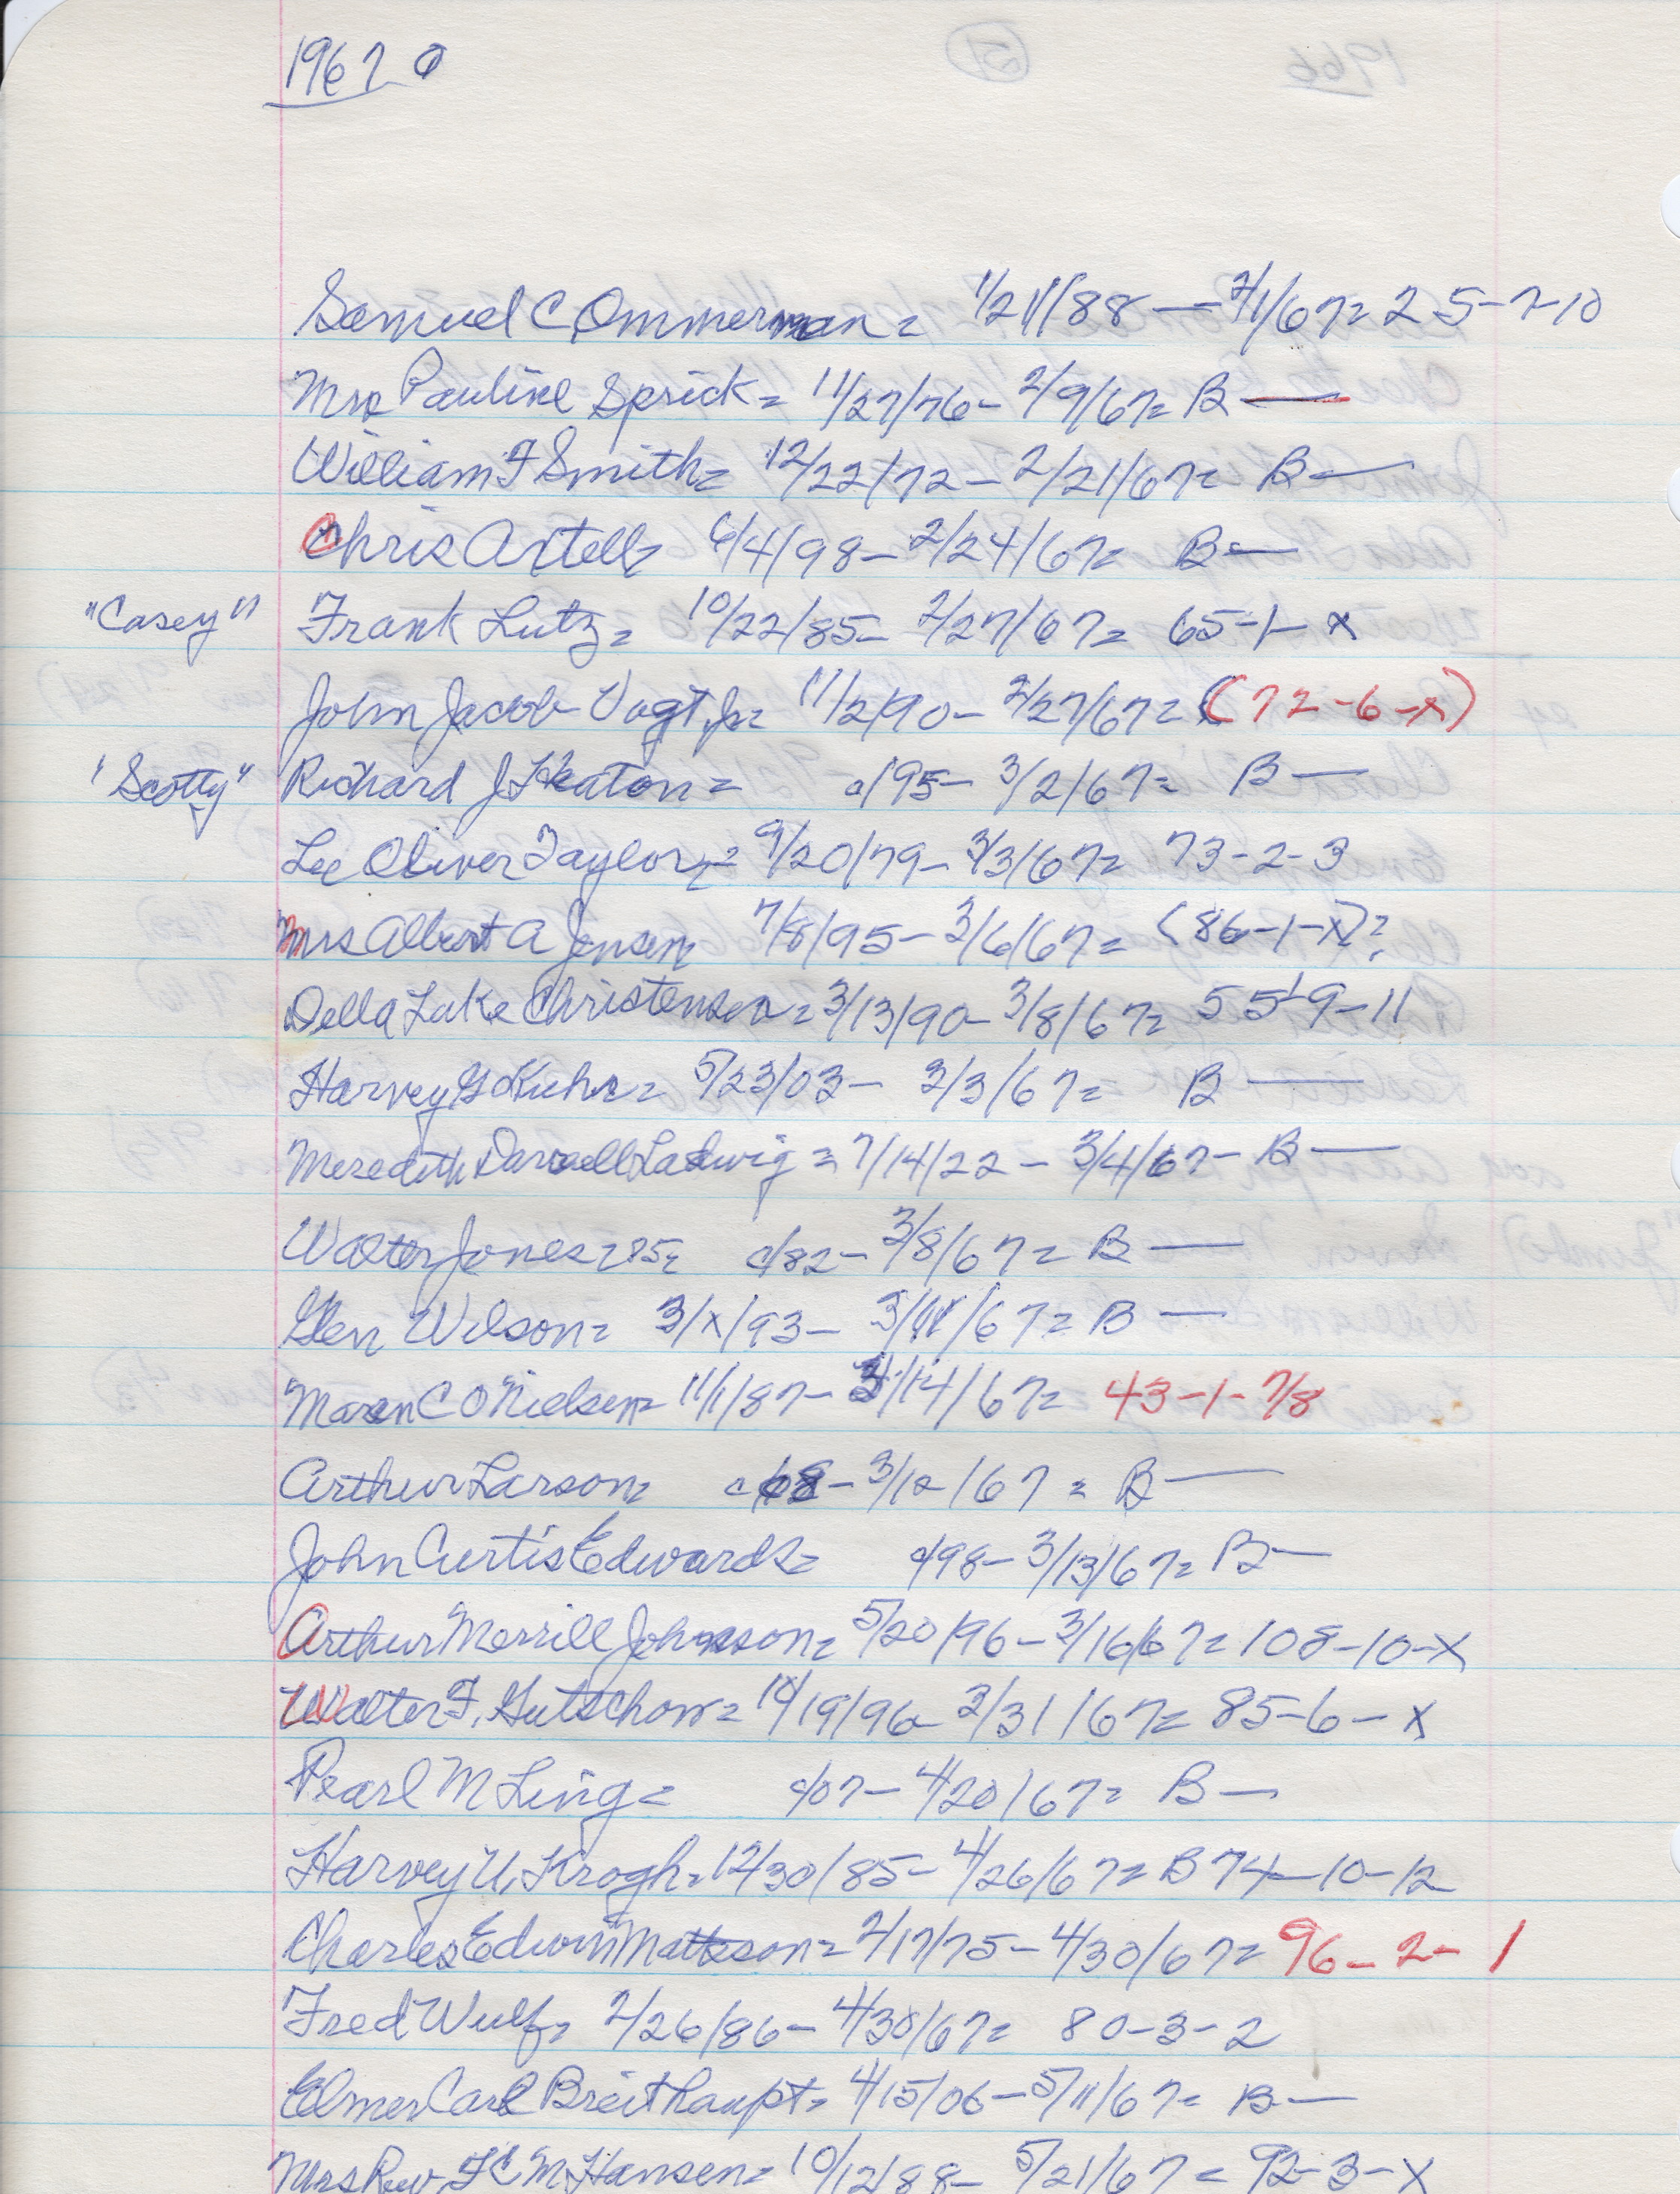 1967
Samuel C Ommerman = 1/21/88 — 2/1/67 = 25-7-10
Mrs Pauline Sprick = 11/27/76 - 2/9/67 = B —
William F Smith = 12/22/72 - 2/21/67 = B —
Chris Axtell = 6/4/98 - 2/24/67 = B —
"Casey" Frank Lutz = 10/22/85 - 2/27/67 = 65-1-X
John Jacob Vogt Jr = 11/2/90 - 2/27/67 = (72-6-X)
"Scotty" Richard J Heaton = c/95 - 3/2/67 = B —
Lee Oliver Taylor = 9/20/79 - 3/3/67 = 73-2-3
Mrs Albert A Jensen 7/8/95 - 3/6/67 = (86-1-X)?
Della Lake Christensen = 3/13/90 - 3/8/67 = 55-9-11
Harvey G Kuhr = 5/23/03 - 3/3/67 = B —
Meredith Darrell Ladwig = 7/14/22 - 3/4/67 - B —
Walter Jones = 85 = c/82 - 3/8/67 = B —
Glen Wilson = 3/X/93 - 3/11/67 = B —
Maren C O Nielsen = 11/1/87 - 3/14/67 = 43-1-7/8
Arthur Larson = - 3/12/67 = B —
John Curtis Edwards = c/98 - 3/13/67 = B —
Arthur Merrill Johnson = 5/20/96 - 3/16/67 = 108-10-X
Walter F. Gutschow = 10/19/96 - 3/31/67 = 85-6-X
Pearl M Ling = c/07 - 4/20/67 = B —
Harvey U. Krogh = 12/30/85 - 4/26/67 = B 74-10-12
Charles Edwin Mattson = 2/17/75 - 4/30/67 = 96-2-1
Fred Wulf = 2/26/86 - 4/30/67 = 80-3-2
Elmer Carl Breithaupt = 4/15/06 - 5/11/67 = B —
Mrs Rev F C M Hansen = 10/12/88 - 5/21/67 = 92-3-X